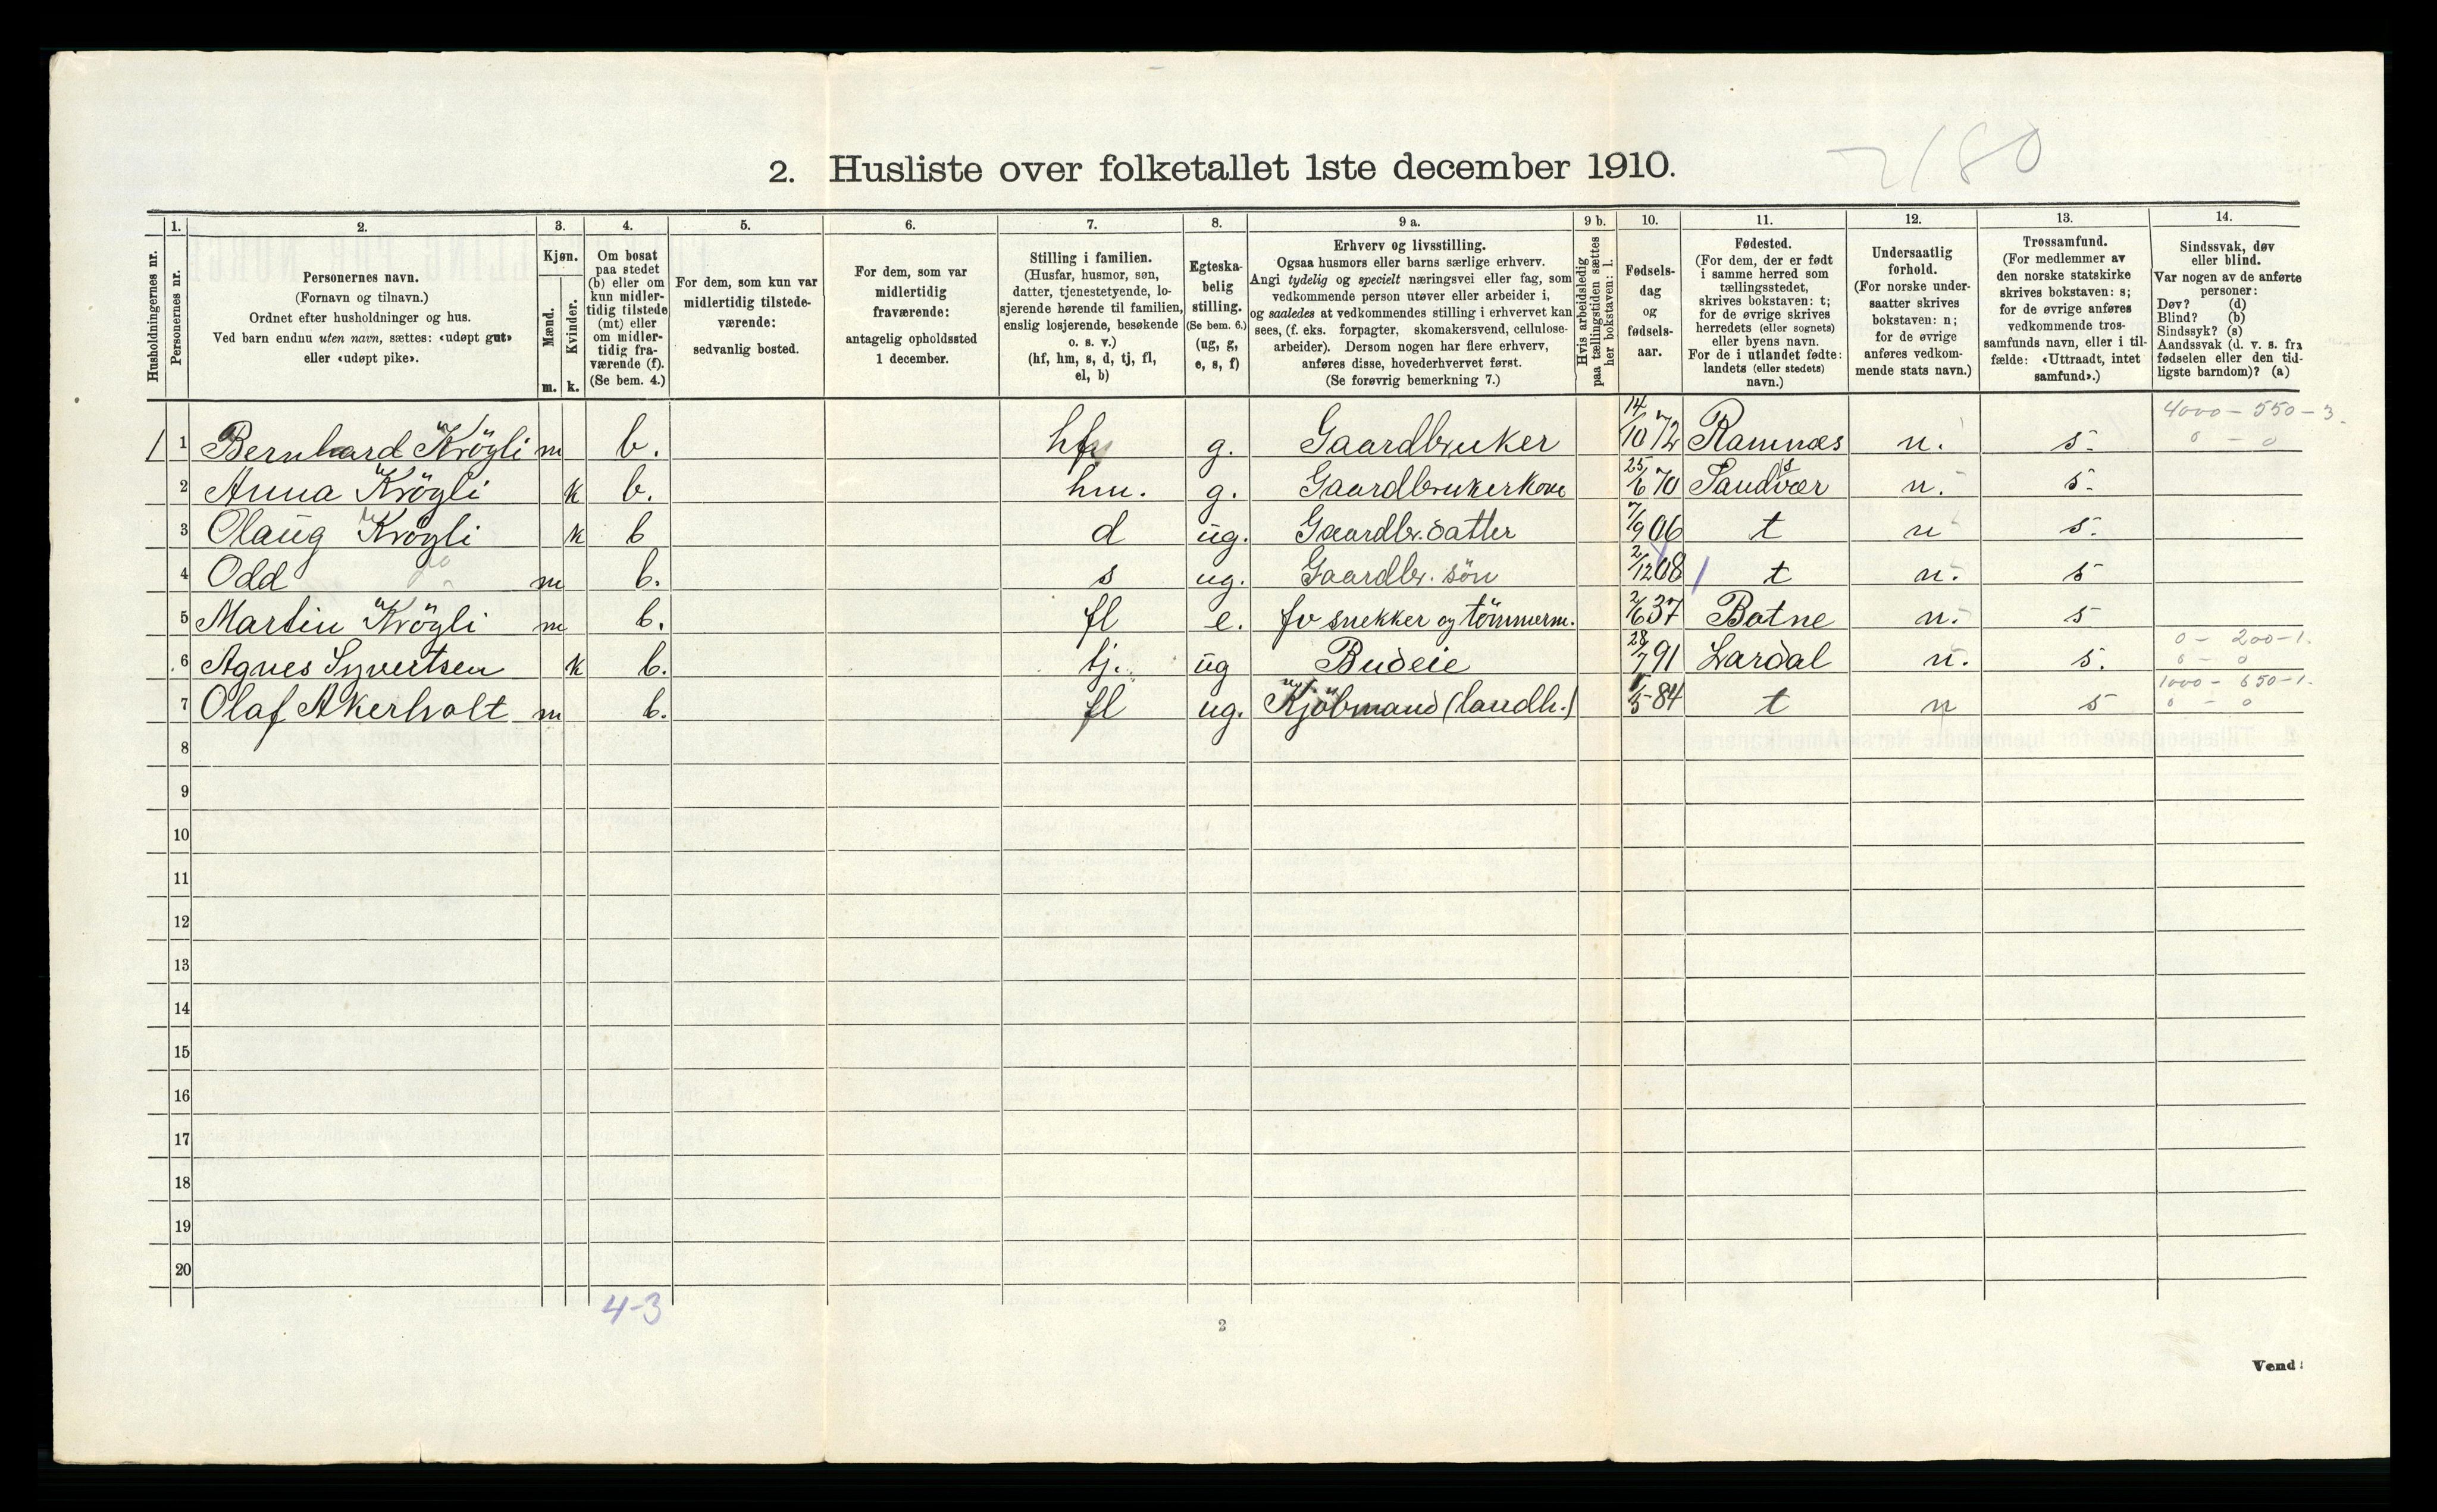 2180
2. Husliste over folketallet 1ste december 1910.
Husholdningernes nr.
1. Personernes nr.
2. Personernes navn.
(Fornavn og tilnavn.)
Ordnet efter husholdninger og hus.
Ved barn endnu uten navn, sættes: «udøpt gut»
eller «udøpt pike».
3. Kjøn.
Mænd. m.
Kvinder. k.
4. Om bosat
paa stedet
(b) eller om
kun midler-
tidig tilstede
(mt) eller
om midler-
tidig fra-
værende (f).
(Se bem. 4.)
5. For dem, som kun var
midlertidig tilstede-
værende:
sedvanlig bosted.
6. For dem, som var
midlertidig
fraværende:
antagelig opholdssted
1 december.
7. Stilling i familien.
(Husfar, husmor, søn,
datter, tjenestetyende, lo-
sjerende hørende til familien,
enslig losjerende, besøkende
o. s. v.)
(hf, hm, s, d, tj, fl,
el, b)
8. Egteska-
belig
stilling.
(Se bem. 6.)
(ug, g,
e, s, f)
9 a. Erhverv og livsstilling.
Ogsaa husmors eller barns særlige erhverv.
Angi tydelig og specielt næringsvei eller fag, som
vedkommende person utøver eller arbeider i,
og saaledes at vedkommendes stilling i erhvervet kan
sees, (f. eks. forpagter, skomakersvend, cellulose-
arbeider). Dersom nogen har flere erhverv,
anføres disse, hovederhvervet først.
(Se forøvrig bemerkning 7.)
9 b. Hvis arbeidsledig
paa tællingstiden sættes
her bokstaven: l.
10. Fødsels-
dag
og
fødsels-
aar.
11. Fødested.
(For dem, der er født
i samme herred som
tællingsstedet,
skrives bokstaven: t;
for de øvrige skrives
herredets (eller sognets)
eller byens navn.
For de i utlandet fødte:
landets (eller stedets)
navn.)
12. Undersaatlig
forhold.
(For norske under-
saatter skrives
bokstaven: n;
for de øvrige
anføres vedkom-
mende stats navn.)
13. Trossamfund.
(For medlemmer av
den norske statskirke
skrives bokstaven: s;
for de øvrige anføres
vedkommende tros-
samfunds navn, eller i til-
fælde: «Uttraadt, intet
samfund».)
14. Sindssvak, døv
eller blind.
Var nogen av de anførte
personer:
Døv? (d)
Blind? (b)
Sindssyk? (s)
Aandssvak (d. v. s. fra
fødselen eller den tid-
ligste barndom)? (a)
4000 – 550 – 3
1 1 Bernhard Krögli m b. hf g. Gaardbruker 14/10 72 Ramnæs n. s. 0 – 0
2 Anna Krögli k b. hm. g. Gaardbrukerkone 25/6 70 Sandsvær n. s.
3 Olaug Krögli k b d ug. Gaardbr. datter 7/9 06 t n s.
4 Odd do m b. s ug. Gaardbr. sön 2/12 08 t n. s
5 Martin Krögli m b. fl e. fv snekker og tömmerm. 2/6 37 Botne n. s
0 – 200 – 1.
6 Agnes Syvertsen k b. tj. ug Budeie 28/7 91 Lardal n. s. 0 – 0
1000 – 650 – 1.
7 Olaf Akerholt m b. fl ug. Kjöbmand (landh.) 84 t n s 0 – 0
8
9
10
11
12
13
14
15
16
17
18
19
20
4-3
2
Vend!